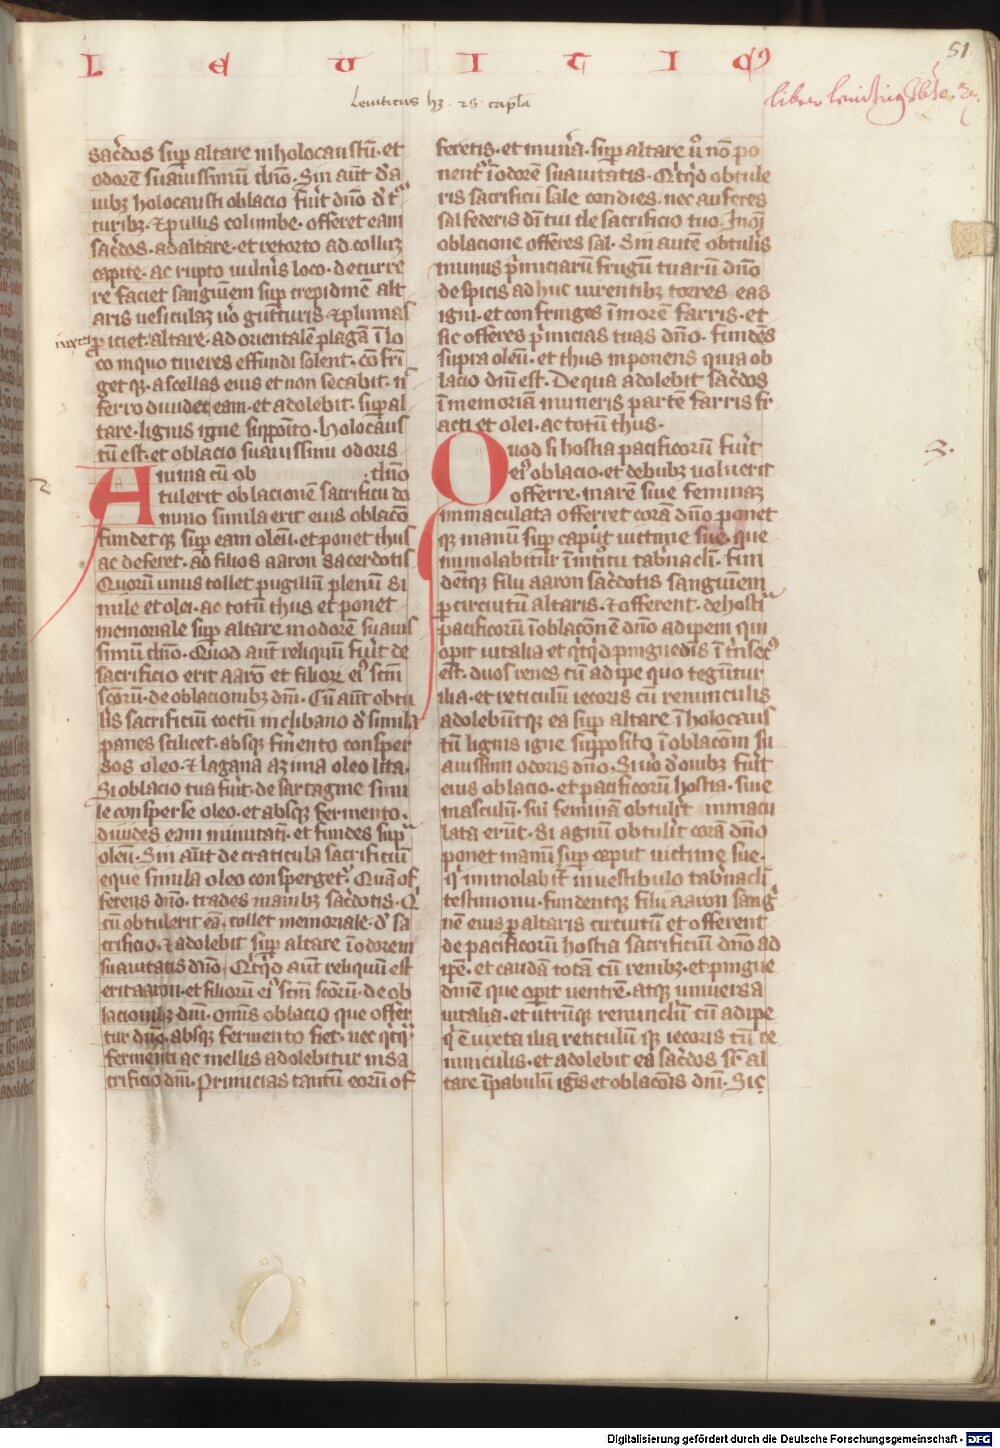 L E U I T I Cꝰ
51
Leuiticus hꝫ · 28 · capl̄a
sac̄dos sup̄ altare in holocaustū · et
odorē suauissimū dn̄o · Sin aūt d̓ a
uibꝫ holocausti oblacio fu̓it dn̄o d̓ t᷑
turibꝫ · ⁊ pullis columbe · offeret eam
sac̄dos · ad altare · et retorto ad collum
capite · ac rupto uuln̓is loco · decurre
re faciet sanguinem sup̄ crepidinē alt
aris uesiculaꝫ u̓o gutturis · ⁊ plumas
ꝓiciet altare · ad orientalē plagā ī lo
co in quo cineres effundi solent · cōfrī
getqꝫ · ascellas eius et non secabit · n̄
ferro diuidet eam · et adolebit · sup̄ al
tare · lignis igne suppoīto · holocaus
tū est · et oblacio suauissimi odoris
Anima cū ob · dn̄o
tulerit oblacionē sacrificii do
mino simila erit eius oblacō
fundetqꝫ sup̄ eam oleū · et ponet thus
ac deferet · ad filios aaron sacerdotis
Quorū unus tollet pugillū plenū si
mile et olei · ac totū thus et ponet
memoriale sup̄ altare in odorē suauis
simū dn̄o · Quod aūt reliquū fu̓it de
sacrificio erit aarō et filiorꝫ ei᷒ scm̄
scōrū · de oblacionibꝫ dn̄i · Cū aūt obtu
l̓is sacrificiū coctū in clibano d̓ simila
panes scilicet · absqꝫ fm̄ento consper
sos oleo · ⁊ lagana azima oleo lita ·
Si oblacio tua fu̓it · de sartagine simi
le consperse oleo · et absqꝫ fermento ·
diuides eam minutatī · et fundes sup᷑
oleū · Sin aūt de craticula sacrificiū
eque simila oleo conspergetᷣ · Quā of
ferens dn̄o · trades manibꝫ sac̄dotis · Q̇
cū obtulerit eā · tollet memoriale · d̓ sa
crificio · ⁊ adolebit sup̄ altare ī odorem
suauitatis dn̄o · Qͥcq̄d aūt reliquū est
erit aaron · et filiorū ei᷒ scm̄ scōrū · de ob
lacionibꝫ dn̄i · Om̄is oblacio que offer
tur dn̄o · absqꝫ fermento fiet · nec qͥcqᷓ
fermenti ac mellis adolebitur in sa
crificio dn̄i · Primicias tantū eorū of
feretis · et mun̓a · sup̄ altare u̓o nō po
nentᷣ ī odorē suauitatis · Qͥcq̄d obtule
ris sacrificii sale condies · nec auferes
sal federis dī tui de sacrificio tuo · Inoī
oblacione offeres sal · Sin autē obtul̓is
munus pͥmiciarū frugū tuarū dn̄o
de spicis adhuc uirentibꝫ torres eas
igni · et confringes ī morē farris · et
sic offeres pͥmicias tuas dn̄o · fundēs
supra oleū · et thus inponens quia ob
lacio dn̄i est · De qua adolebit sac̄dos
ī memoriā muneris partē farris fr
acti et olei · ac totū thus ·
Quod si hostia pacificorū fu̓it
ei᷒ oblacio · et de bubꝫ uoluerit
offerre · marē siue feminaꝫ
immaculata offerret corā dn̄o ponet
qꝫ manū sup̄ caput uictime sue · que
immolabitur ī introitu tab̓nacl̄i · fun
dētqꝫ filii aaron sac̄dotis sanguinem
ꝑ circuitū altaris · ⁊ offerent · de hostia
pacificorū ī oblaconē dn̄o adipem qui
op̓it uitalia et qͥcq̄d pinguedīs ī tn̓sec᷒
est · duos renes cū adipe quo tegūtur
ilia · et reticulū iecoris cū renunculis
adolebūtqꝫ ea sup̄ altare ī holocaus
tū lignis igne supposito ī oblacōm su
auissimi odoris dn̄o · Si u̓o d̓ ouibꝫ fu̓it
eius oblacio · et pacificorū hostia · siue
masculū · siu feminā obtul̓it inmacu
lata erūt · Si agnū obtul̓it corā dn̄o
ponet manū sup̄ caput uictime sue ·
qͥ immolabit᷑ in uestibulo tab̓nacl̄i
testimonii · fundentqꝫ filii aaron sang̓
nē eius ꝑ altaris circuitū et offerent
de pacificorū hostia sacrificiū dn̄o ad
ipē · et caudā totā cū renibꝫ · et pingue
dinē que op̓it uentrē · atqꝫ uniuersa
uitalia · et utrūqꝫ renuncl̄ū cū adipe
qͥ ē iuxta ilia reticulū qꝫ iecoris cū re
nunculis · et adolebit ea sac̄dos sr̄ al
tare ī pabulū igīs et oblacōis dn̄i · Sic
Digitalisierung gefördert durch die Deutsche Forschungsgemeinschaft - DFG